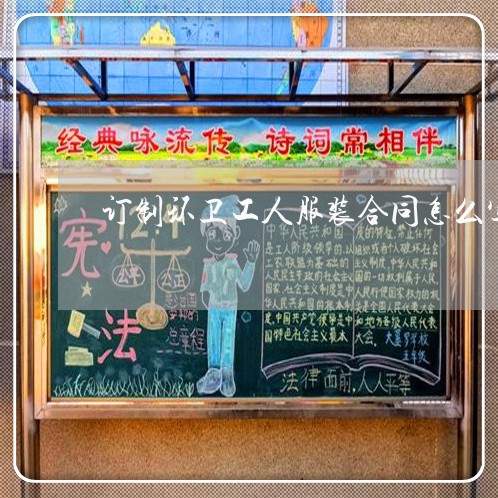 经典咏流传 诗词常相伴
订制环卫工人服装合同怎么
宪法
公平
公平
公正
总章程
中华人民共和国
是工人阶级领导的,以
工农联盟为基础的
人民民主专政的社会主义
国家,社会主义制度是中
华人民共和国的根本制
度,中国共产党领导是中
国特色社会主义最本
质的特征,禁止任何
组织或者个人破坏社会
主义制度,中华人民共和
国的一切权利属于人民,
人民行使国家权力的机
关是全国人民代表大会
和地方各级人民代表
大会。
五年级
法律面前,人人平等